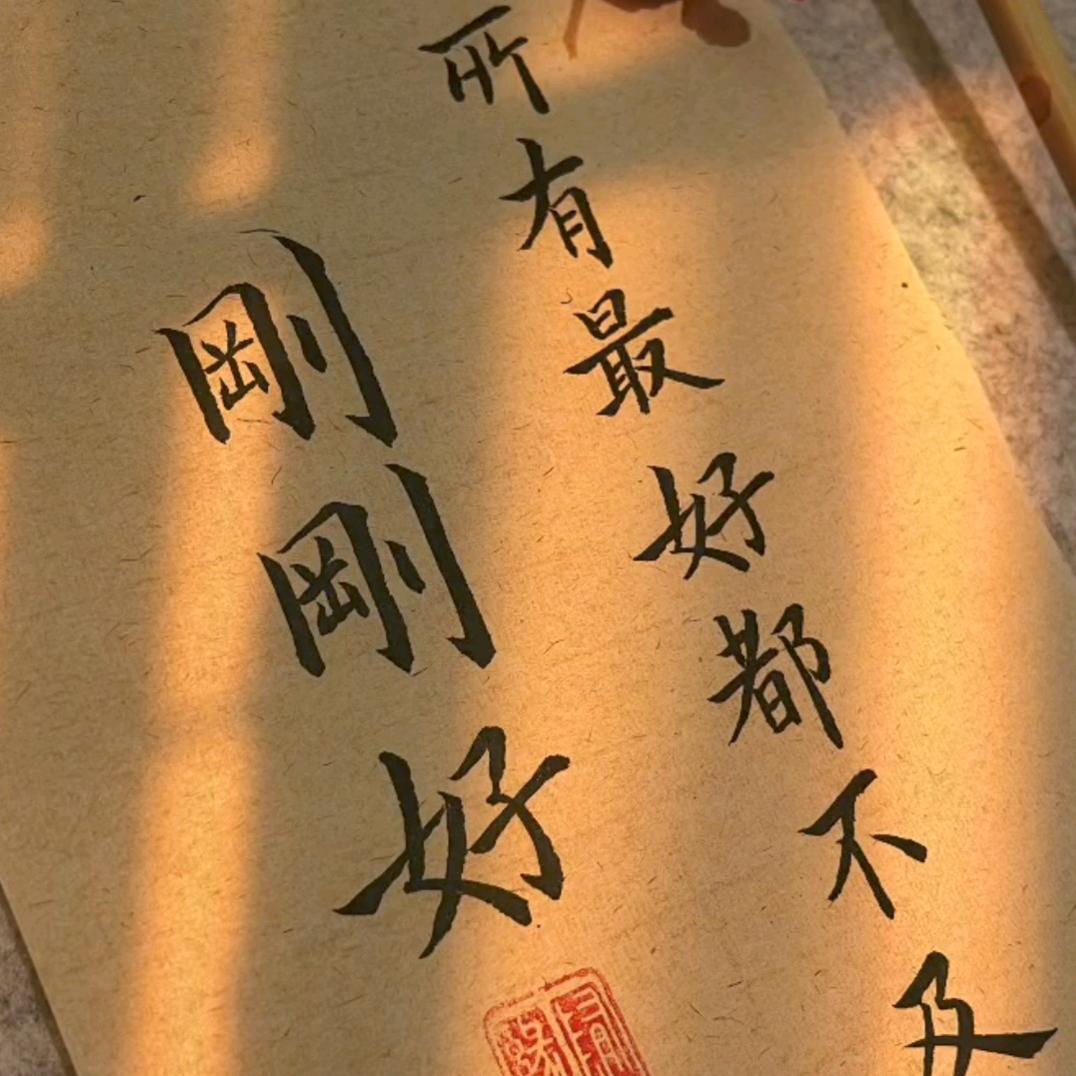 所有最好都不及
剛剛好